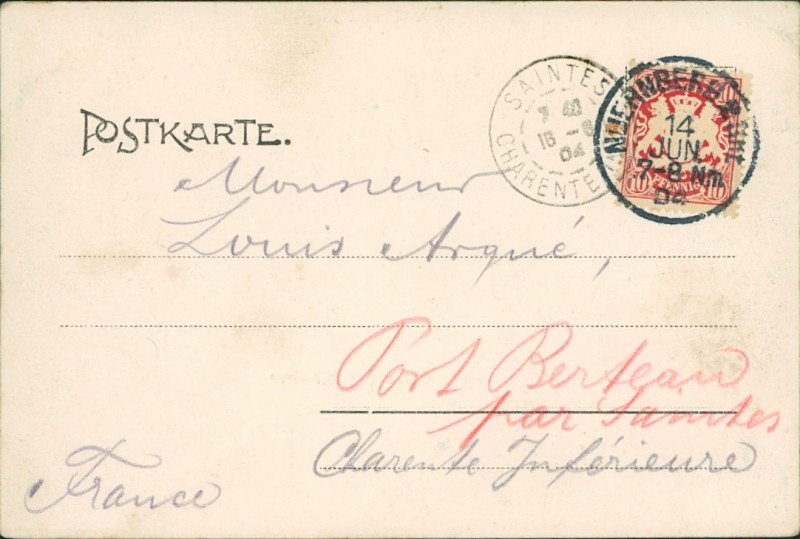 POSTKARTE.
SAINTES
7
16 -6
04
CHARENTE
NUERNBERG
14
JUN.
7-8 Nm.
04
10
10 PFENNIG 10
Monsieur
Louis Arqué,
Port Berteau
par Saintes
Clarente Inférieure
France